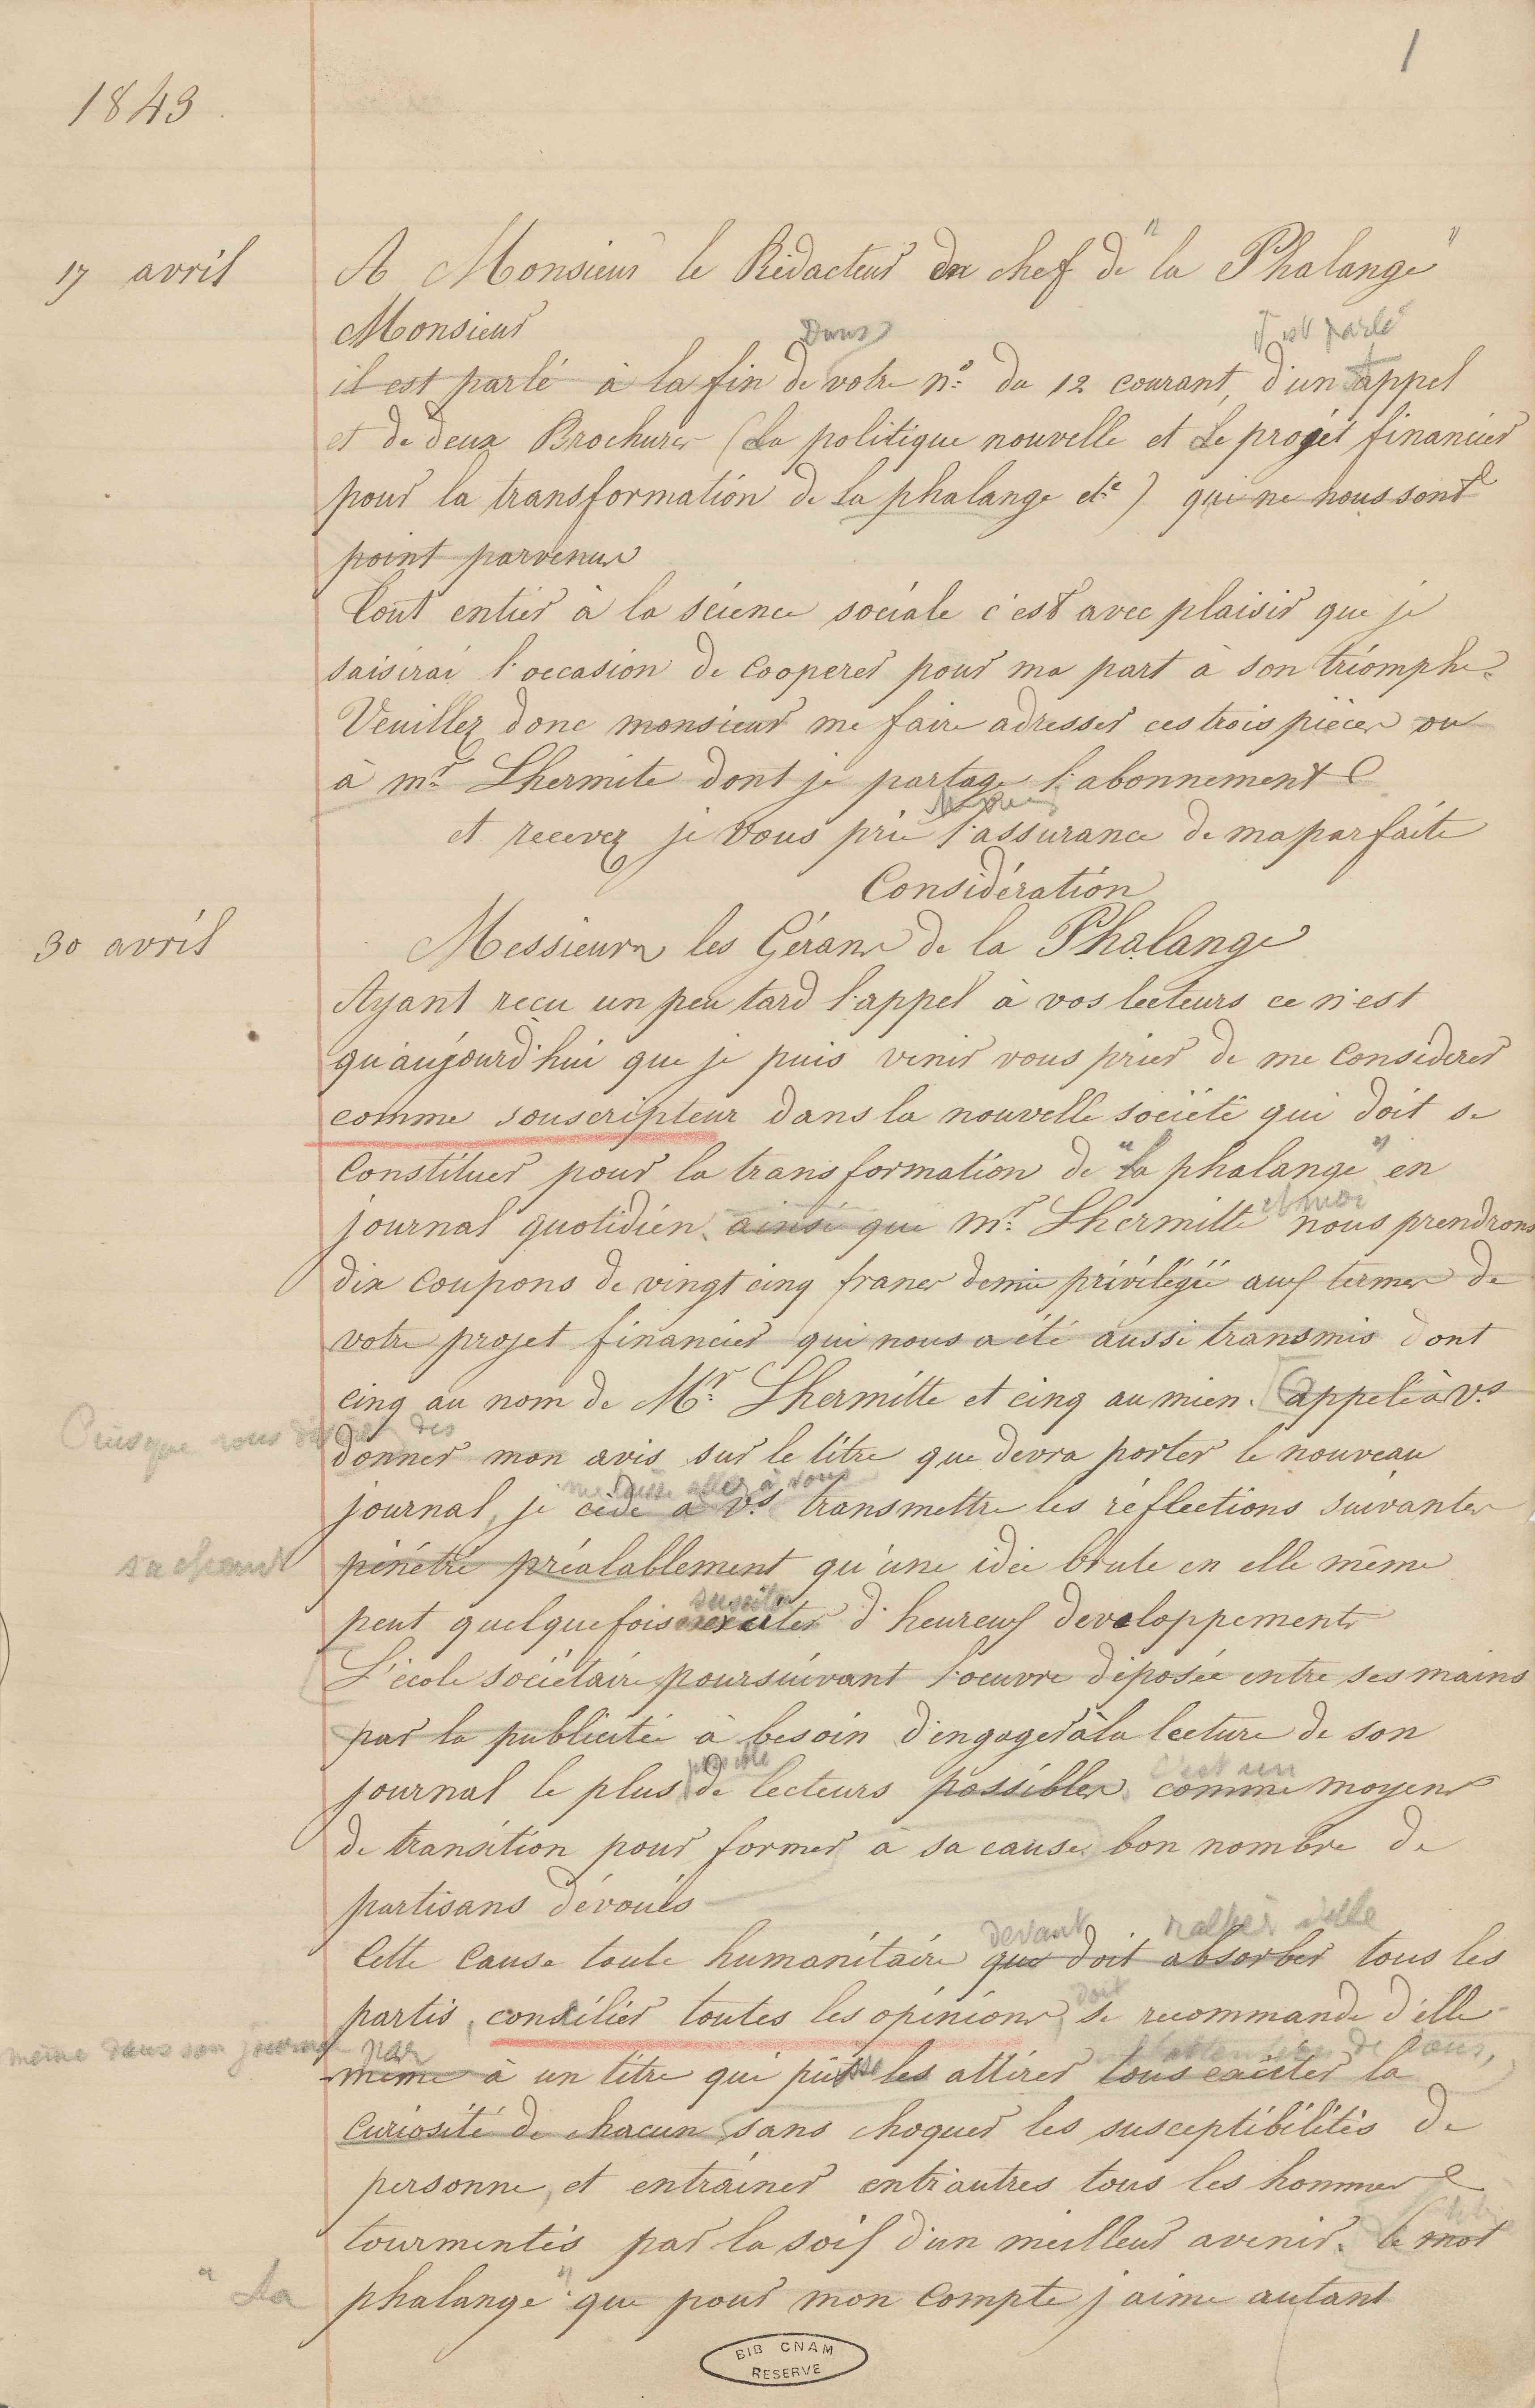 1
1843
17 avril
A Monsieur le Rédacteur en chef de "la Phalange"
Monsieur
Dans
il est parlé
il est parlé à la fin de votre n.o du 12 courant, d'un appel
et de deux Brochures (La politique nouvelle et Le projet financier
pour la transformation de la phalange etc) qui ne nous sont
point parvenus
Tout entier à la science sociale c'est avec plaisir que je
saisirai l'occasion de cooperer pour ma part à son triomphe.
Veuillez donc monsieur me faire adresser ces trois pièces ou
à mr. Lhermite dont je partage l'abonnement
et recevez je vous prie l'assurance de ma parfaite
Considération
30 avril
Messieurs les Gérans de la Phalange
Ayant reçu un peu tard l'appel à vos lecteurs ce n'est
qu'aujourd'hui que je puis venir vous prier de me considerer
comme souscripteur dans la nouvelle société qui doit se
Constituer pour la transformation de "la phalange" en
et moi
journal quotidien. ainsi que mr. Lhermitte nous prendrons
dix Coupons de vingt cinq francs demie privilégiée aux termes de
votre projet financier qui nous a été aussi transmis dont
cinq au nom de Mr. Lhermitte et cinq au mien. appelé à vs.
Puisque vous désirez des
donner mon avis sur le titre que devra porter le nouveau
me laisse aller à vous
journal, je cède à vs. transmettre les réflections suivantes
sachant
pénétré préalablement qu'une idée brute en elle même
susciter
peut quelquefois exciter d'heureux developpements
L'école sociétaire poursuivant l'oeuvre déposée entre ses mains
par la publicitée à besoin d'engager à la lecture de son
possible
c'est un
journal le plus de lecteurs possibles. comme moyens
de transition pour former à sa cause bon nombre de
partisans dévoués
devant rallier à elle
Cette Cause toute humanitaire que doit absorber tous les
doit
partis, concilier toutes les opinions se recommande d'elle
même dans son journal par
de tous,
même à un titre qui put les attirer tous exciter la
Curiosité de chacun sans choquer les susceptibilités de
personne, et entraîner entr'autres tous les hommes
tourmentés par la soif d'un meilleur avenir. le mot
"La
phalange" que pour mon compte j'aime autant
BIB CNAM
RESERVE